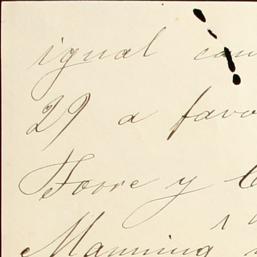 igual can
29 a favo
Torre y C
Manning